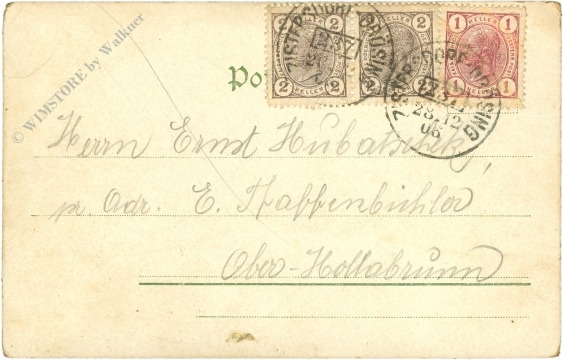 © WIMSTORE by Walkner
2 2 2 2 1 1
HELLER HELLER HELLER
28.12
06
Herrn Ernst Hubatschek,
pr. Adr. E. Raffenbichler
Ober-Hollabrunn